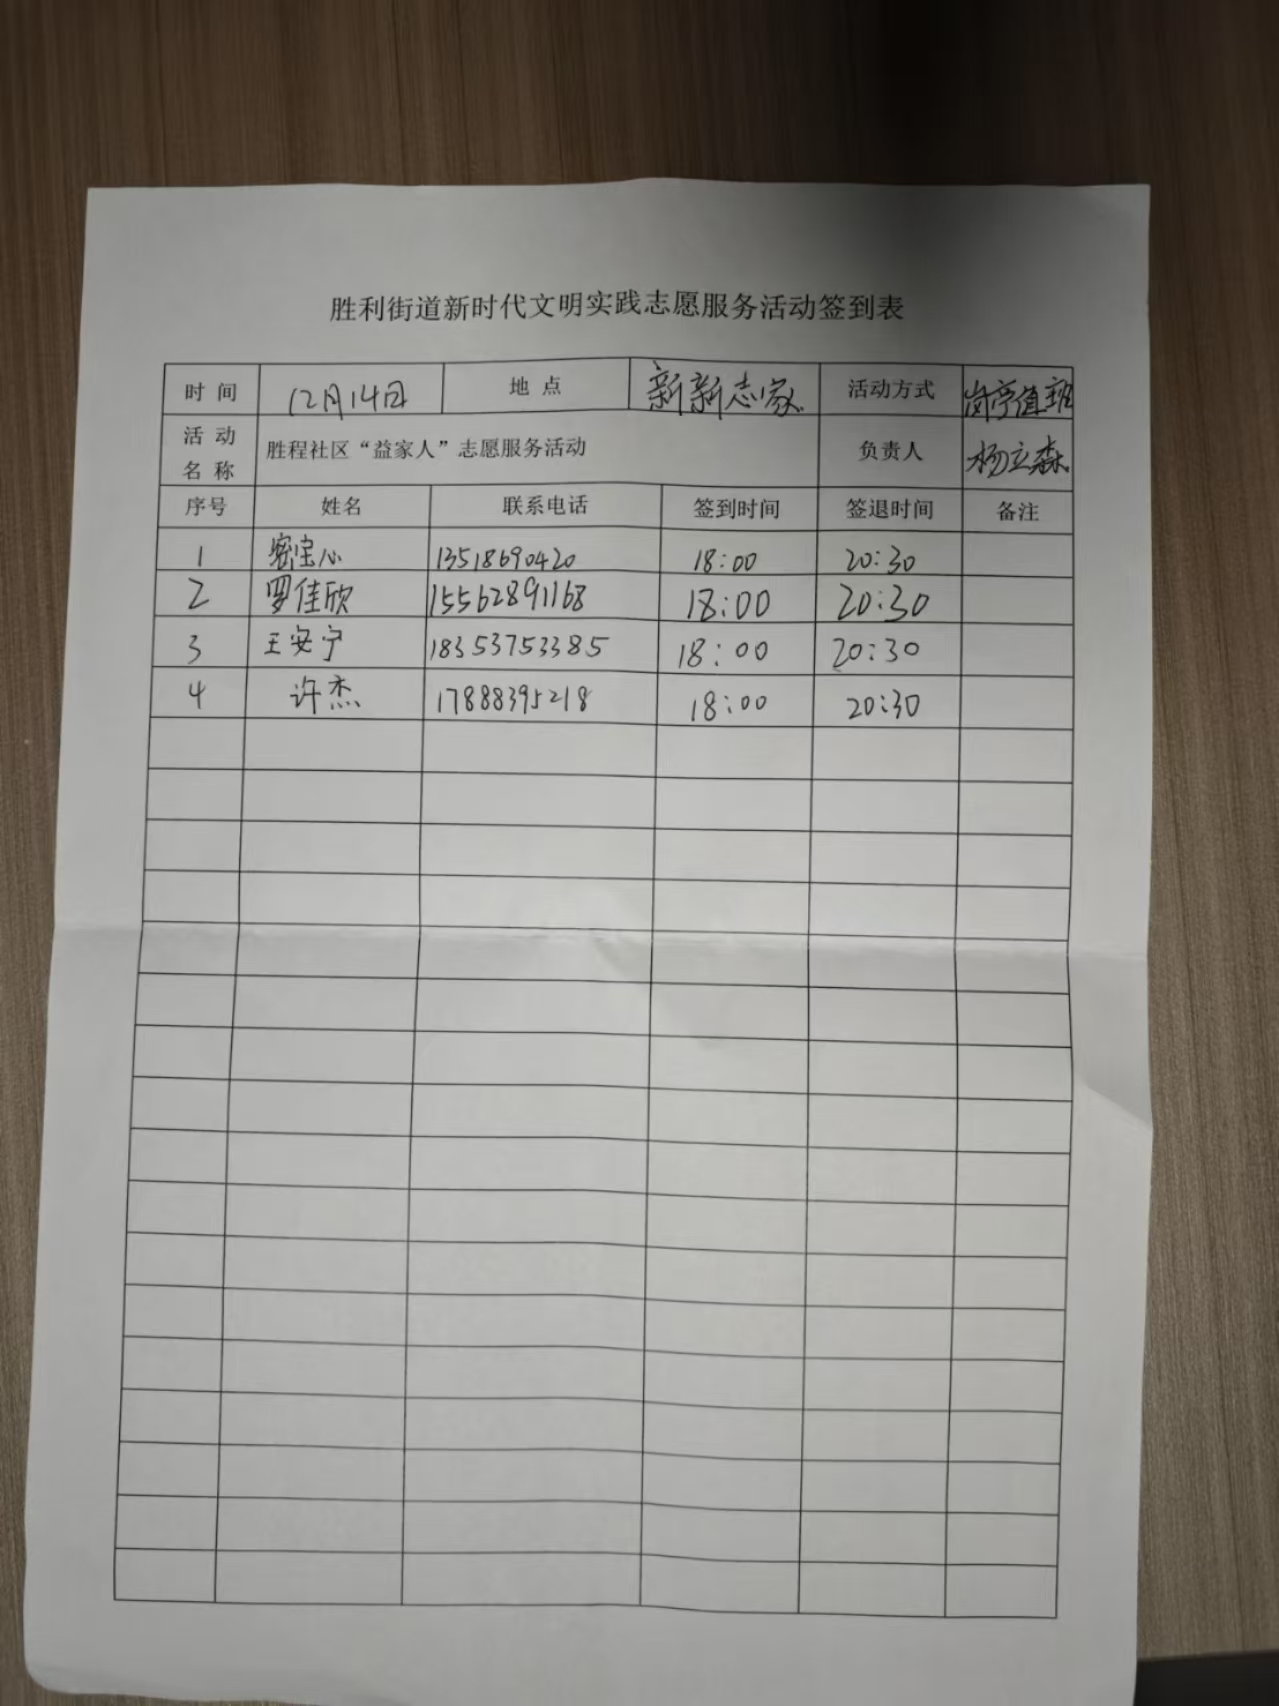 胜利街道新时代文明实践志愿服务活动签到表
时间 12月14日 地点 新新志家 活动方式 岗亭值班
活动名称 胜程社区“益家人”志愿服务活动 负责人 杨立森
序号 姓名 联系电话 签到时间 签退时间 备注
1 密宝心 13518690420 18:00 20:30
2 罗佳欣 15562891168 18:00 20:30
3 王安宁 18353753385 18:00 20:30
4 许杰 17888395218 18:00 20:30